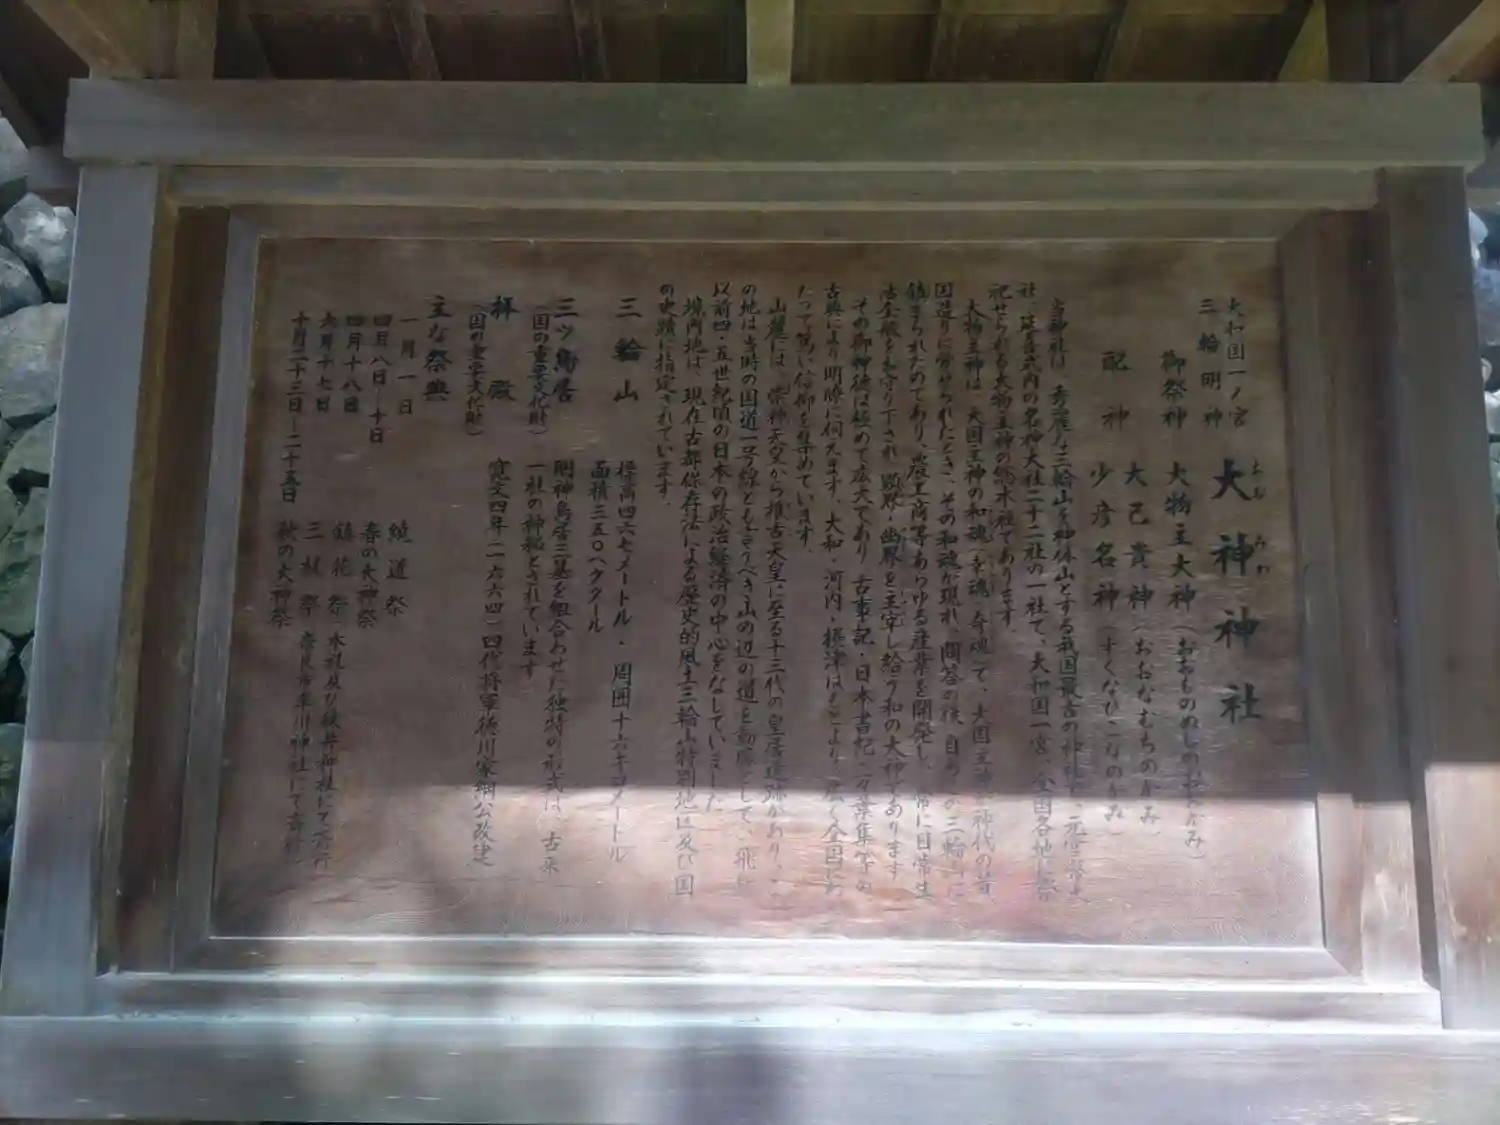 大和国一ノ宮
三輪明神
大神神社
おお みわ
御祭神 大物主大神(おおものぬしのおおかみ)
配神 大己貴神(おおなむちのかみ)
少彦名神(すくなひこなのかみ)
当神社は、秀麗な三輪山を神体山とする我国最古の神社で、元官幣大
社、延喜式内の名神大社二十二社の一社で、大和国一宮、全国各地に祭
祀せられる大物主神の総本社であります
大物主神は、大国主神の和魂(幸魂・奇魂)で、大国主神が神代の昔
国造りに労せられたとき、その和魂が現れ、開拓の後、自らこの三輪山に
鎮まられたのであり、農工商等あらゆる産業を開発し、常に日常生
活全般をも守り下され、顕界・幽界を主宰し給う和の大神であります
その御神徳は極めて広大であり 古事記・日本書紀・万葉集等の
古典により明瞭に伺えます、大和・河内・摂津はもとより、広く全国にわ
たって篤い信仰を集めています.
山麓には、崇神天皇から推古天皇に至る十三代の皇居遺跡があり、こ
の地は当時の国道一号線とも言うべき山の辺の道を動脈として、飛鳥
以前四・五世紀頃の日本の政治経済の中心をなしていました
境内地は、現在古都保存法による歴史的風土三輪山特別地区及び国
の史蹟に指定されています.
三輪山 標高四六七メートル・周囲十六キロメートル
面積三五〇ヘクタール
三ツ鳥居 明神鳥居三基を組合わせた独特の形式は、古来
(国の重要文化財) 一社の神秘とされています
拝殿 寛文四年(一六六四)四代将軍徳川家綱公改建
(国の重要文化財)
主な祭典
一月一日 繞道祭
四月八日―十日 春の大神祭
四月十八日 鎮花祭(本社及び狭井神社にて斎行)
六月十七日 三枝祭(奈良市率川神社にて斎行)
十月二十三日―二十五日 秋の大神祭